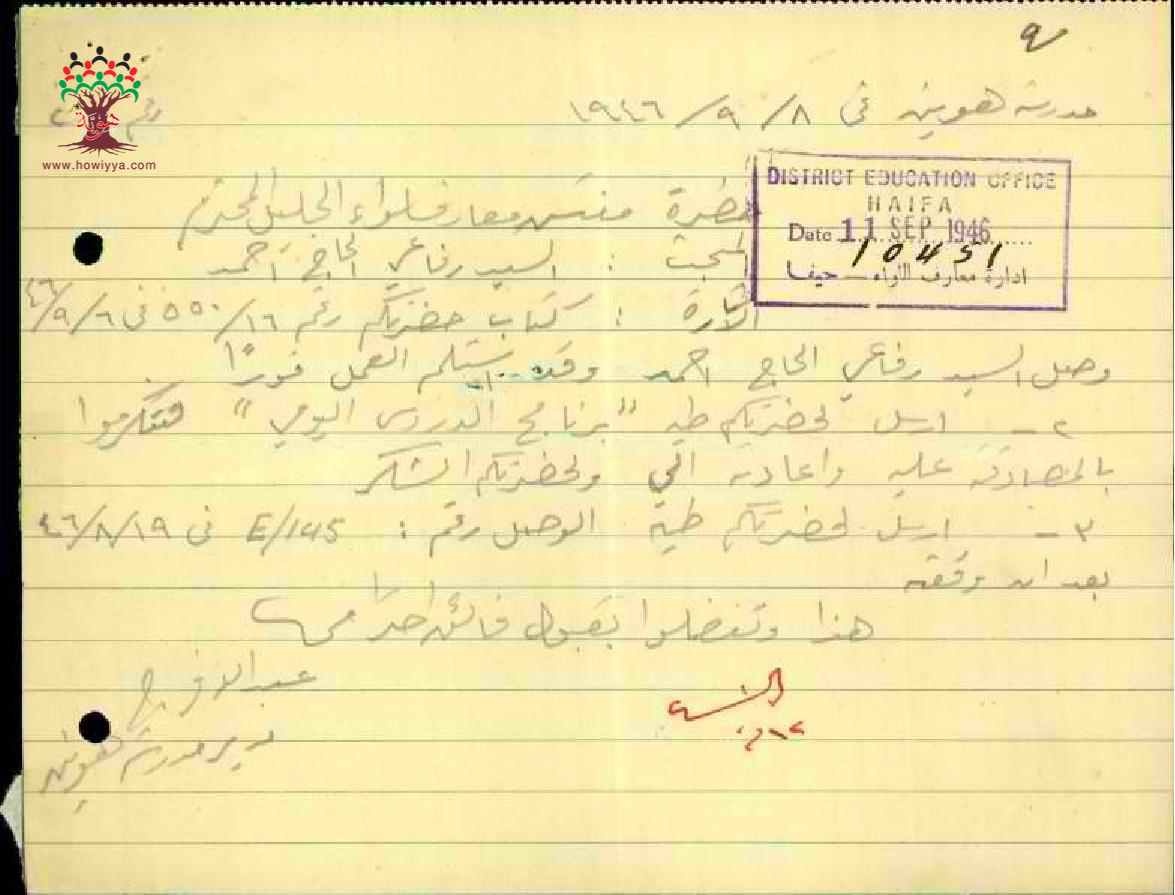 ٩
مدرسة هونين في ٨/ ٩/ ١٩٤٦
رقم
www.howiyya.com
DISTRICT EDUCATION OFFICE
HAIFA
Date 11 SEP 1946
10451
ادارة معارف اللواء — حيفا
حضرة مفتش معارف لواء الجليل المحترم
المبحث : السيد رفاعي الحاج احمد
الاشارة : كتاب حضرتكم رقم ١٦/ ٥٥٠ في ٦/ ٩/ ٤٦
وصل السيد رفاعي الحاج احمد وقد استلم العمل فورًا
٢ - ارسل لحضرتكم طيه "برنامج الدروس اليومي" فتكرموا
بالمصادقة عليه واعادته الي ولحضرتكم الشكر
٣ - ارسل لحضرتكم طية الوصل رقم : E/145 في ١٩/ ٨/ ٤٦
بعد ان وقعته
هذا وتفضلوا بقبول فائق احترامي
مدير مدرسة هونين